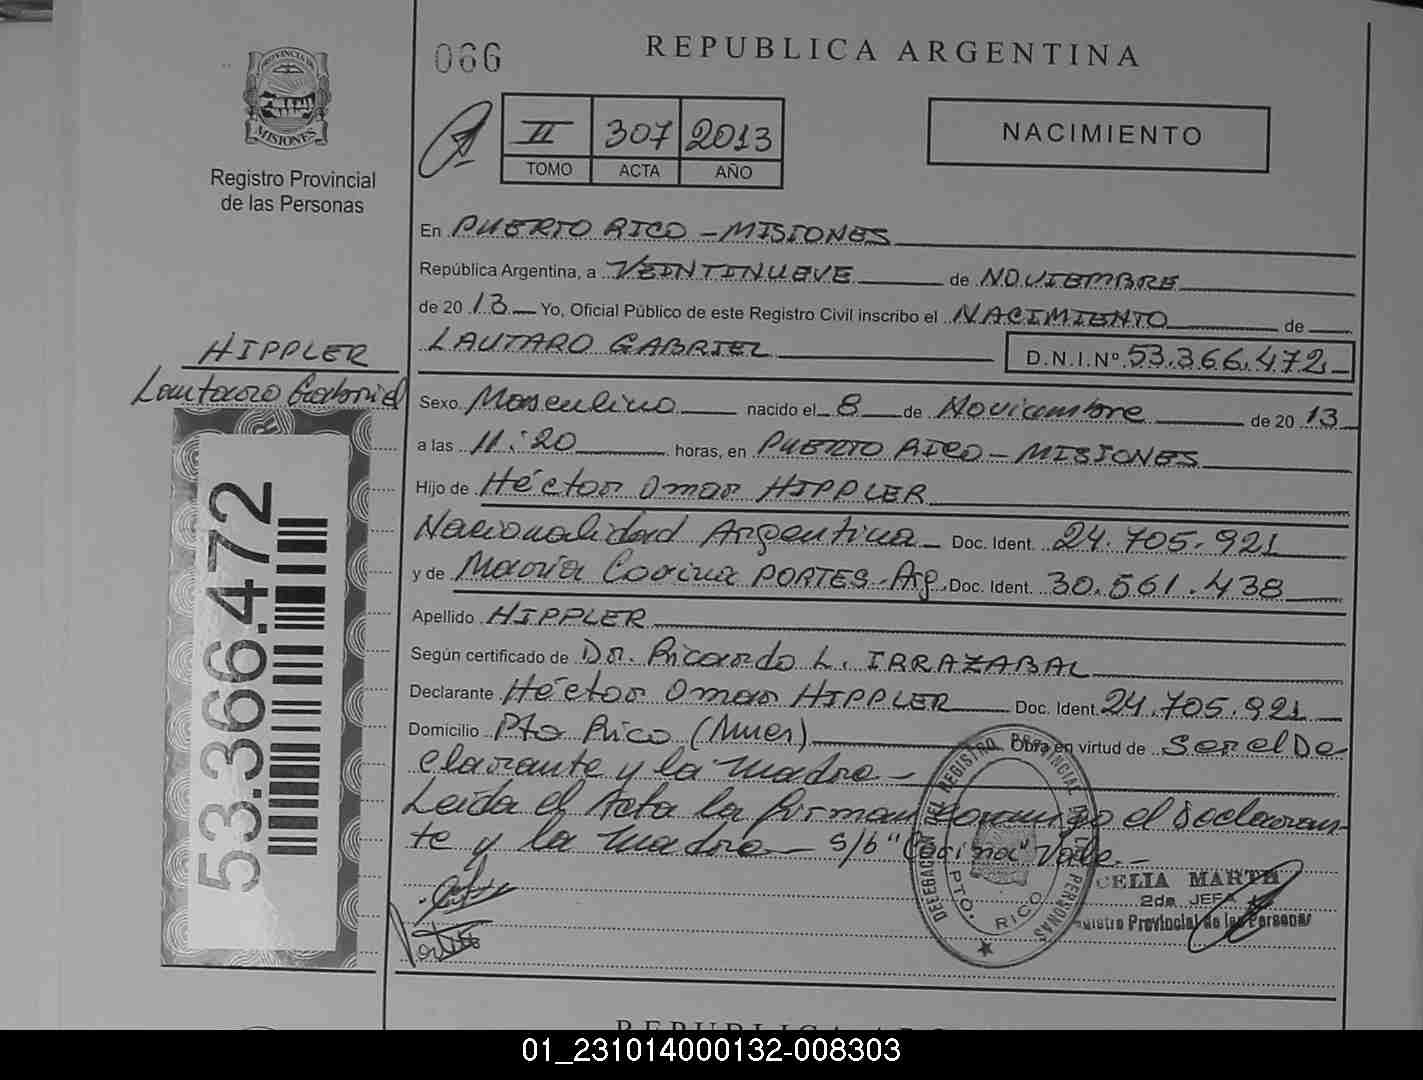 PROVINCIA DE
MISIONES
Registro Provincial
de las Personas
066
REPUBLICA ARGENTINA
II 307 2013
TOMO ACTA AÑO
NACIMIENTO
En PUERTO RICO - MISIONES
República Argentina, a VEINTINUEVE de NOVIEMBRE
de 2013 Yo, Oficial Público de este Registro Civil inscribo el NACIMIENTO de
LAUTARO GABRIEL D.N.I.Nº 53.366.472
HIPPLER
Lautaro Gabriel
53.366.472
Sexo Masculino nacido el 8 de Noviembre de 2013
a las 11:20 horas, en PUERTO RICO - MISIONES
Hijo de Héctor Omar HIPPLER
Nacionalidad Argentina Doc. Ident. 24.705.921
y de María Corina PORTES - Arg. Doc. Ident. 30.561.438
Apellido HIPPLER
Según certificado de Dr. Ricardo L. IRRAZABAL
Declarante Héctor Omar HIPPLER Doc. Ident. 24.705.921
Domicilio Pto Rico (Mnes) Obra en virtud de Ser el De
clarante y la madre -
Leída el Acta la firman conmigo el Declaran-
te y la madre - s/b "Corina" Vale. -
DELEGACION DEL REGISTRO PROVINCIAL DE PERSONAS
PTO. RICO
CELIA MARTH
2da JEFA
Registro Provincial de las Personas
REPUBLICA ARGENTINA
01_231014000132-008303